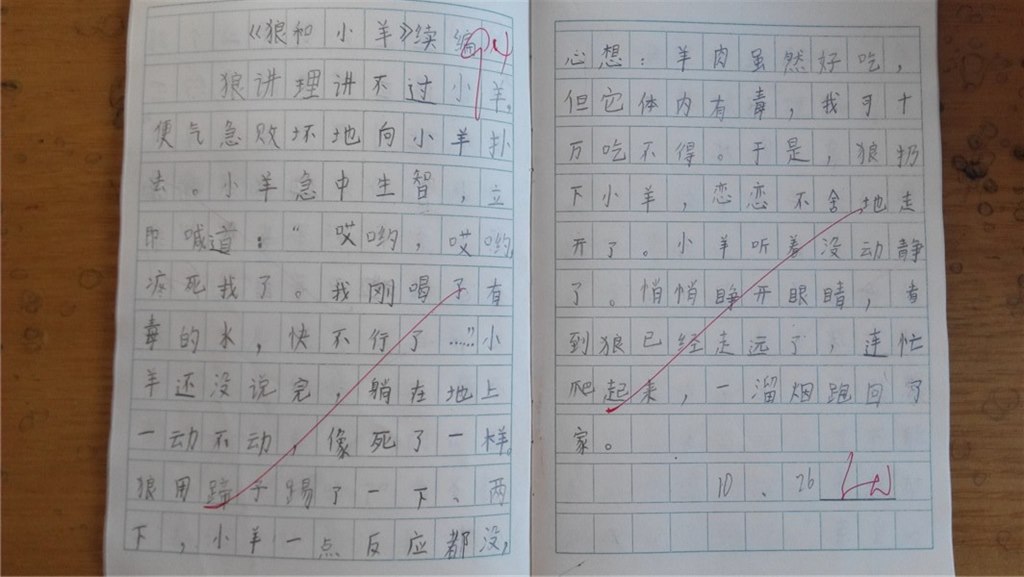 《狼和小羊》续编
狼讲理讲不过小羊，
便气急败坏地向小羊扑
去。小羊急中生智，立
即喊道：“哎哟，哎哟，
疼死我了。我刚喝了有
毒的水，快不行了……”小
羊还没说完，躺在地上
一动不动，像死了一样。
狼用蹄子踢了一下、两
下，小羊一点反应都没，
心想：羊肉虽然好吃，
但它体内有毒，我可十
万吃不得。于是，狼扔
下小羊，恋恋不舍地走
开了。小羊听着没动静
了。悄悄睁开眼睛，看
到狼已经走远了，连忙
爬起来，一溜烟跑回了
家。
10.26